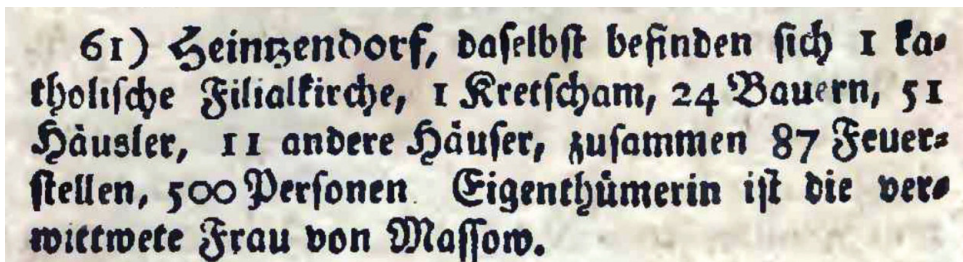 61) Heintzendorf, daselbst befinden sich 1 ka-
tholische Filialkirche, 1 Kretscham, 24 Bauern, 51
Häusler, 11 andere Häuser, zusammen 87 Feuer-
stellen, 500 Personen. Eigenthümerin ist die ver-
wittwete Frau von Massow.